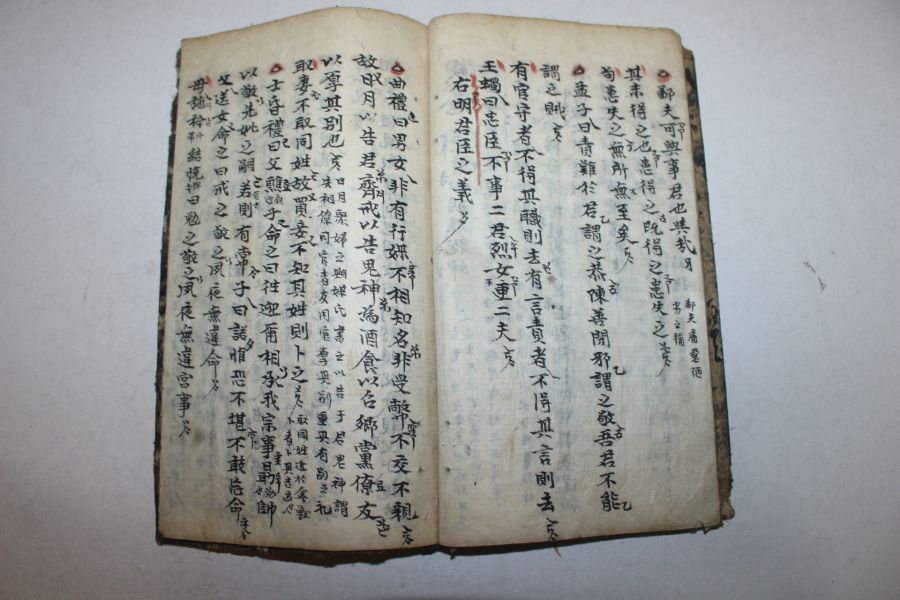 鄙夫可與事君也與哉
鄙夫庸惡陋
劣之稱
其未得之也患得之旣得之患失之
苟患失之無所無至矣
孟子曰責難於君謂之恭陳善閉邪謂之敬吾君不能
謂之賊
有官守者不得其職則去有言責者不得其言則去
王蠋曰忠臣不事二君烈女不更二夫
右明君臣之義
曲禮曰男女非有行媒不相知名非受幣不交不親
故日月以告君齊戒以告鬼神爲酒食以召鄕黨僚友
以厚其別也
日月娶婦之期媒氏書之以告于君鬼神謂
先祖僚同官者友同
重其有別之礼
取妻不取同姓故買妾不知其姓則卜之
取同姓
卜者卜其吉凶也
士昏禮曰父醮子命之曰往迎爾相承我宗事勖帥
以敬先妣之嗣若則有常子曰諾惟恐不堪不敢忘命
父送女命之曰戒之敬之夙夜無違命
母施衿結帨曰勉之敬之夙夜無違宮事